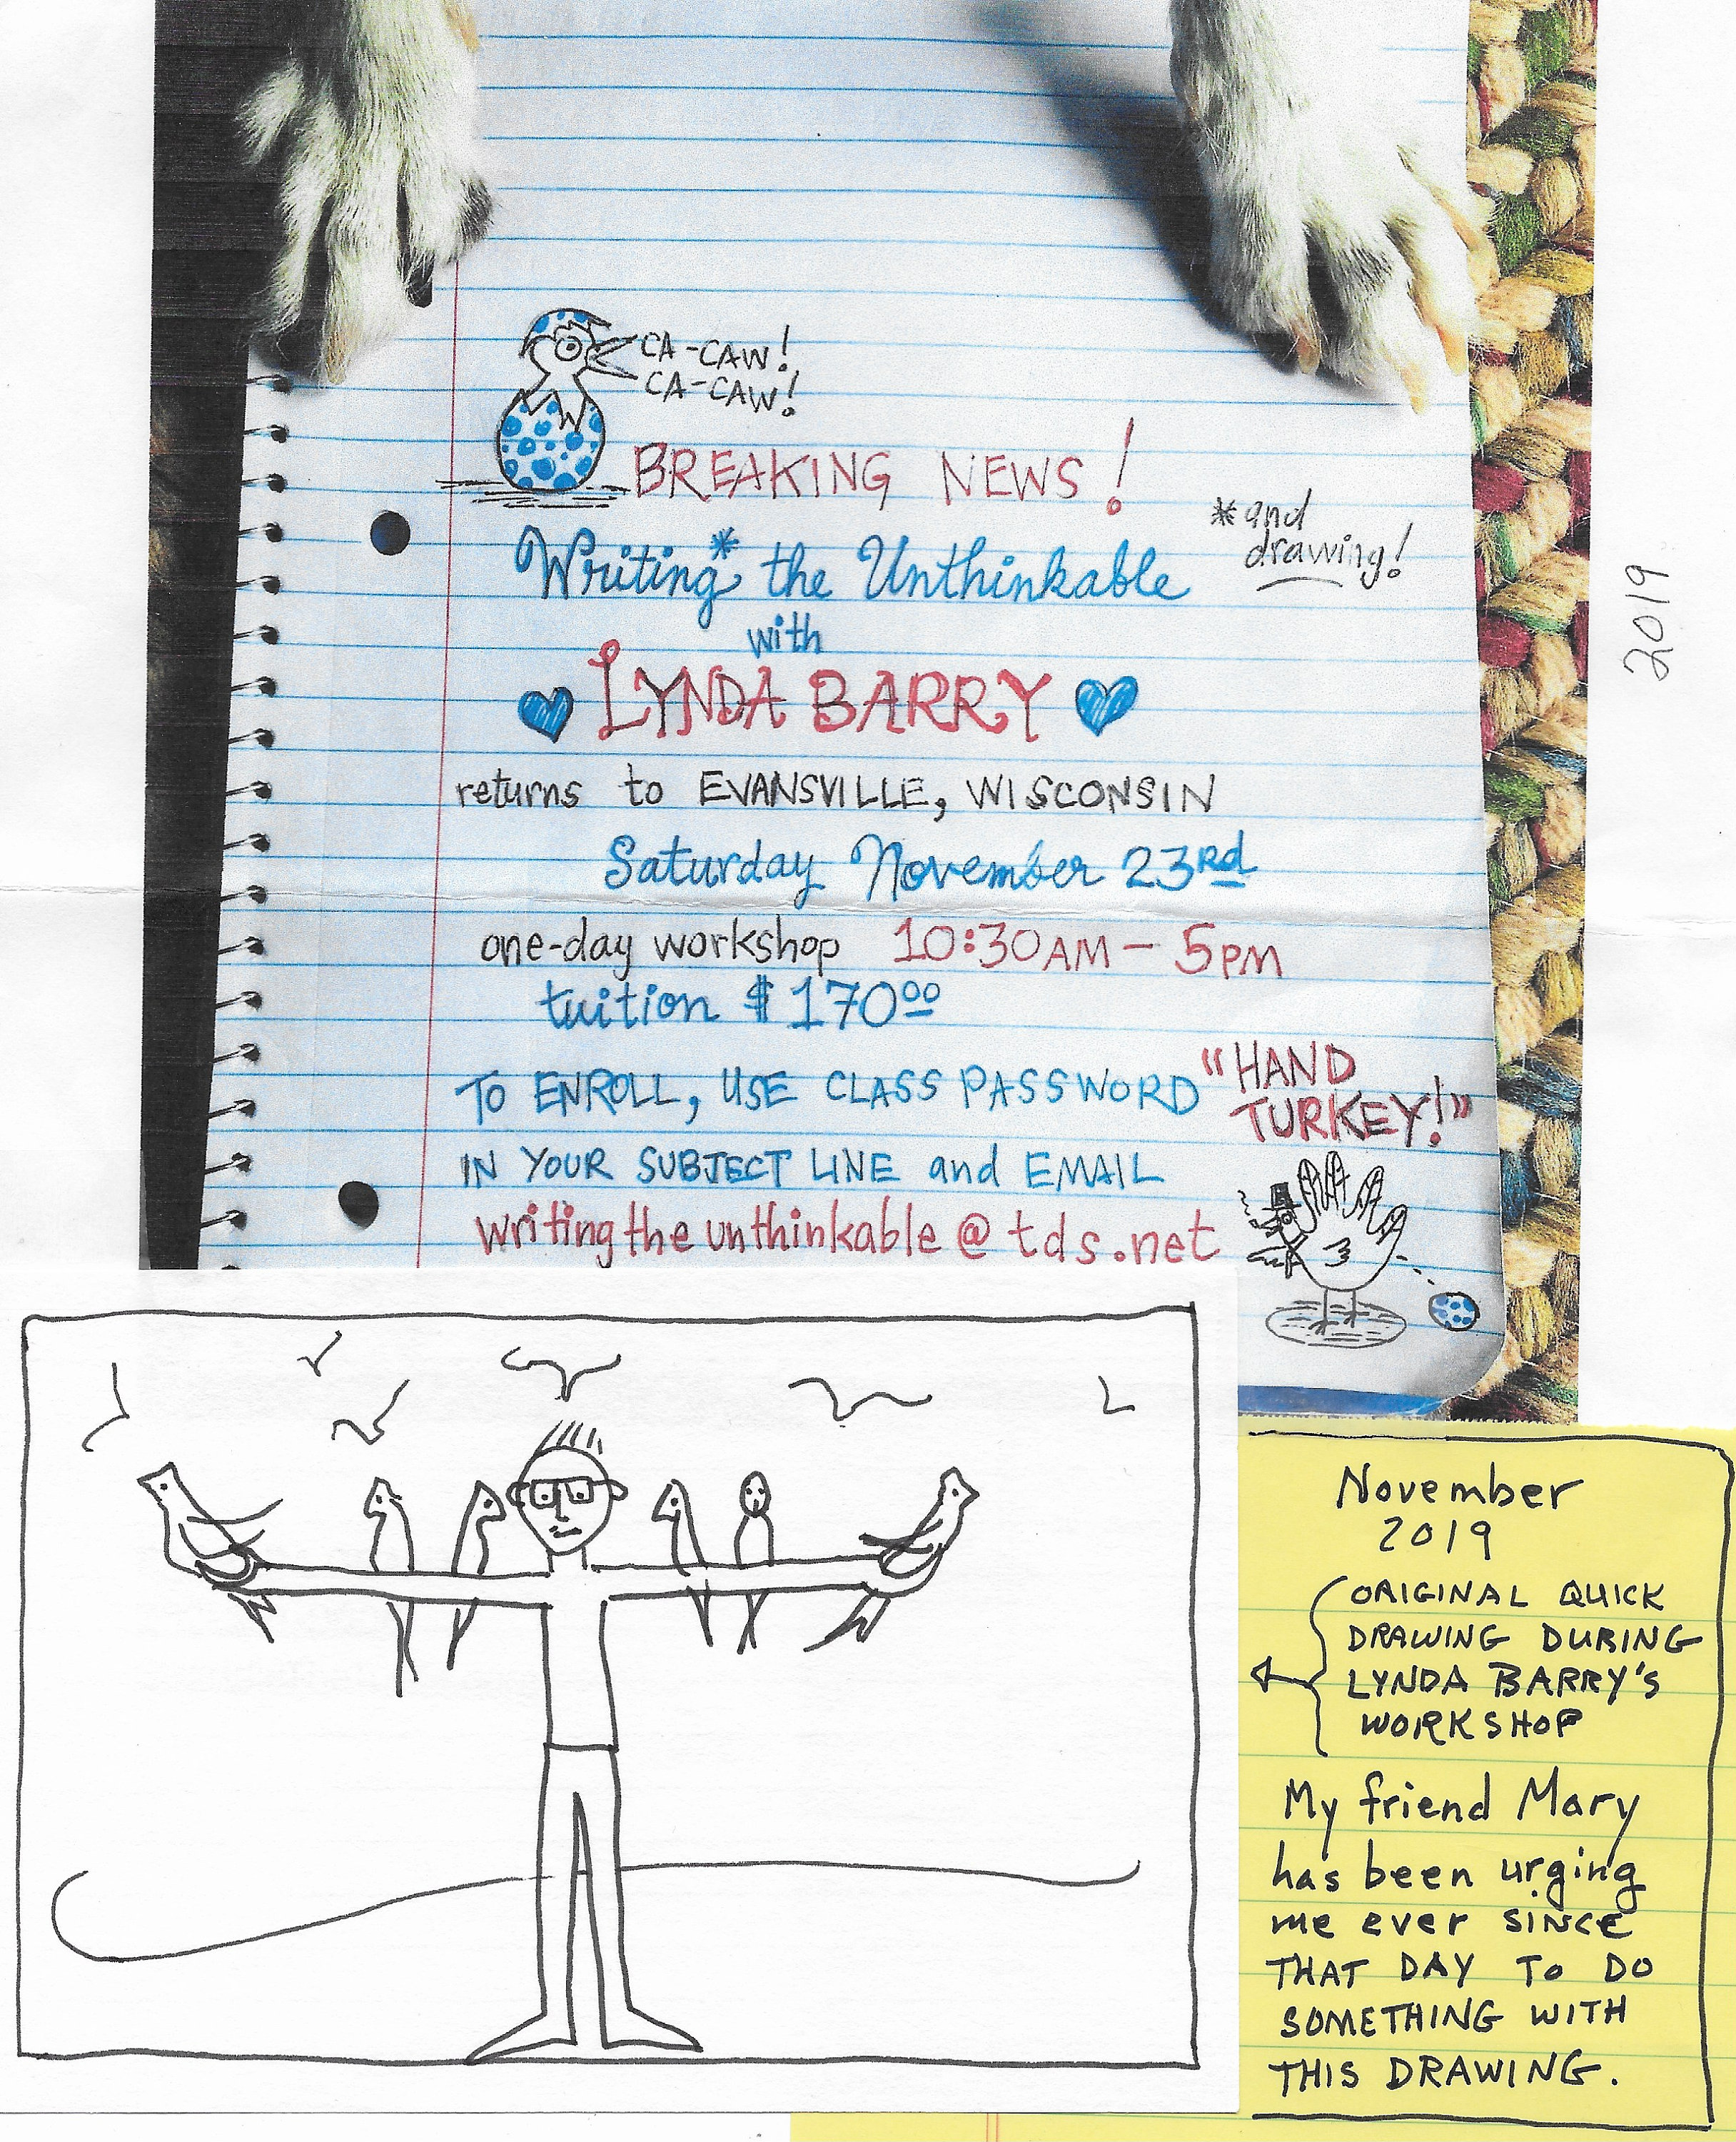 CA-CAW!
CA-CAW!
BREAKING NEWS!
*and
drawing!
Writing* the Unthinkable
with
LYNDA BARRY
returns to EVANSVILLE, WISCONSIN
Saturday November 23rd
one-day workshop 10:30AM - 5PM
tuition $170.00
TO ENROLL, USE CLASS PASSWORD "HAND
TURKEY!"
IN YOUR SUBJECT LINE and EMAIL
writingtheunthinkable@tds.net
2019
November
2019
ORIGINAL QUICK
DRAWING DURING
LYNDA BARRY'S
WORKSHOP
My friend Mary
has been urging
me ever SINCE
THAT DAY To DO
SOMETHING WITH
THIS DRAWING.